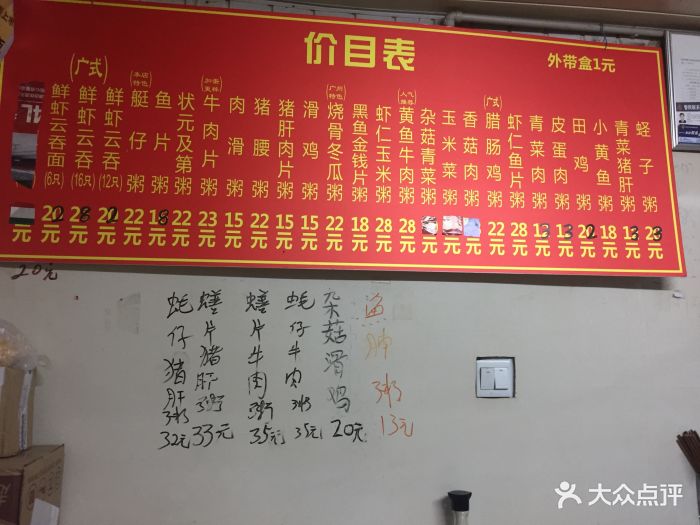 价目表
外带盒1元
(广式)
鲜虾云吞面(6只) 20元
鲜虾云吞(16只) 28元
鲜虾云吞(12只) 20元
本店特色
艇仔粥 22元
鱼片粥 18元
状元及第粥 22元
加蛋更鲜
牛肉片粥 23元
肉滑粥 15元
猪腰粥 22元
猪肝肉片粥 15元
滑鸡粥 15元
广州特色
烧骨冬瓜粥 22元
黑鱼金钱片粥 18元
虾仁玉米粥 28元
人气推荐
黄鱼牛肉粥 28元
杂菇青菜粥 元
玉米菜粥 元
香菇肉粥 元
广式
腊肠鸡粥 22元
虾仁鱼片粥 28元
青菜肉粥 13元
皮蛋肉粥 13元
田鸡粥 20元
小黄鱼粥 18元
青菜猪肝粥 13元
蛏子粥 23元
元
20元
蚝仔猪肝粥 32元
蟮片猪肝粥 33元
蟮片牛肉粥 35元
蚝仔牛肉粥 35元
杂菇滑鸡 20元
鱼肿粥 13元
大众点评